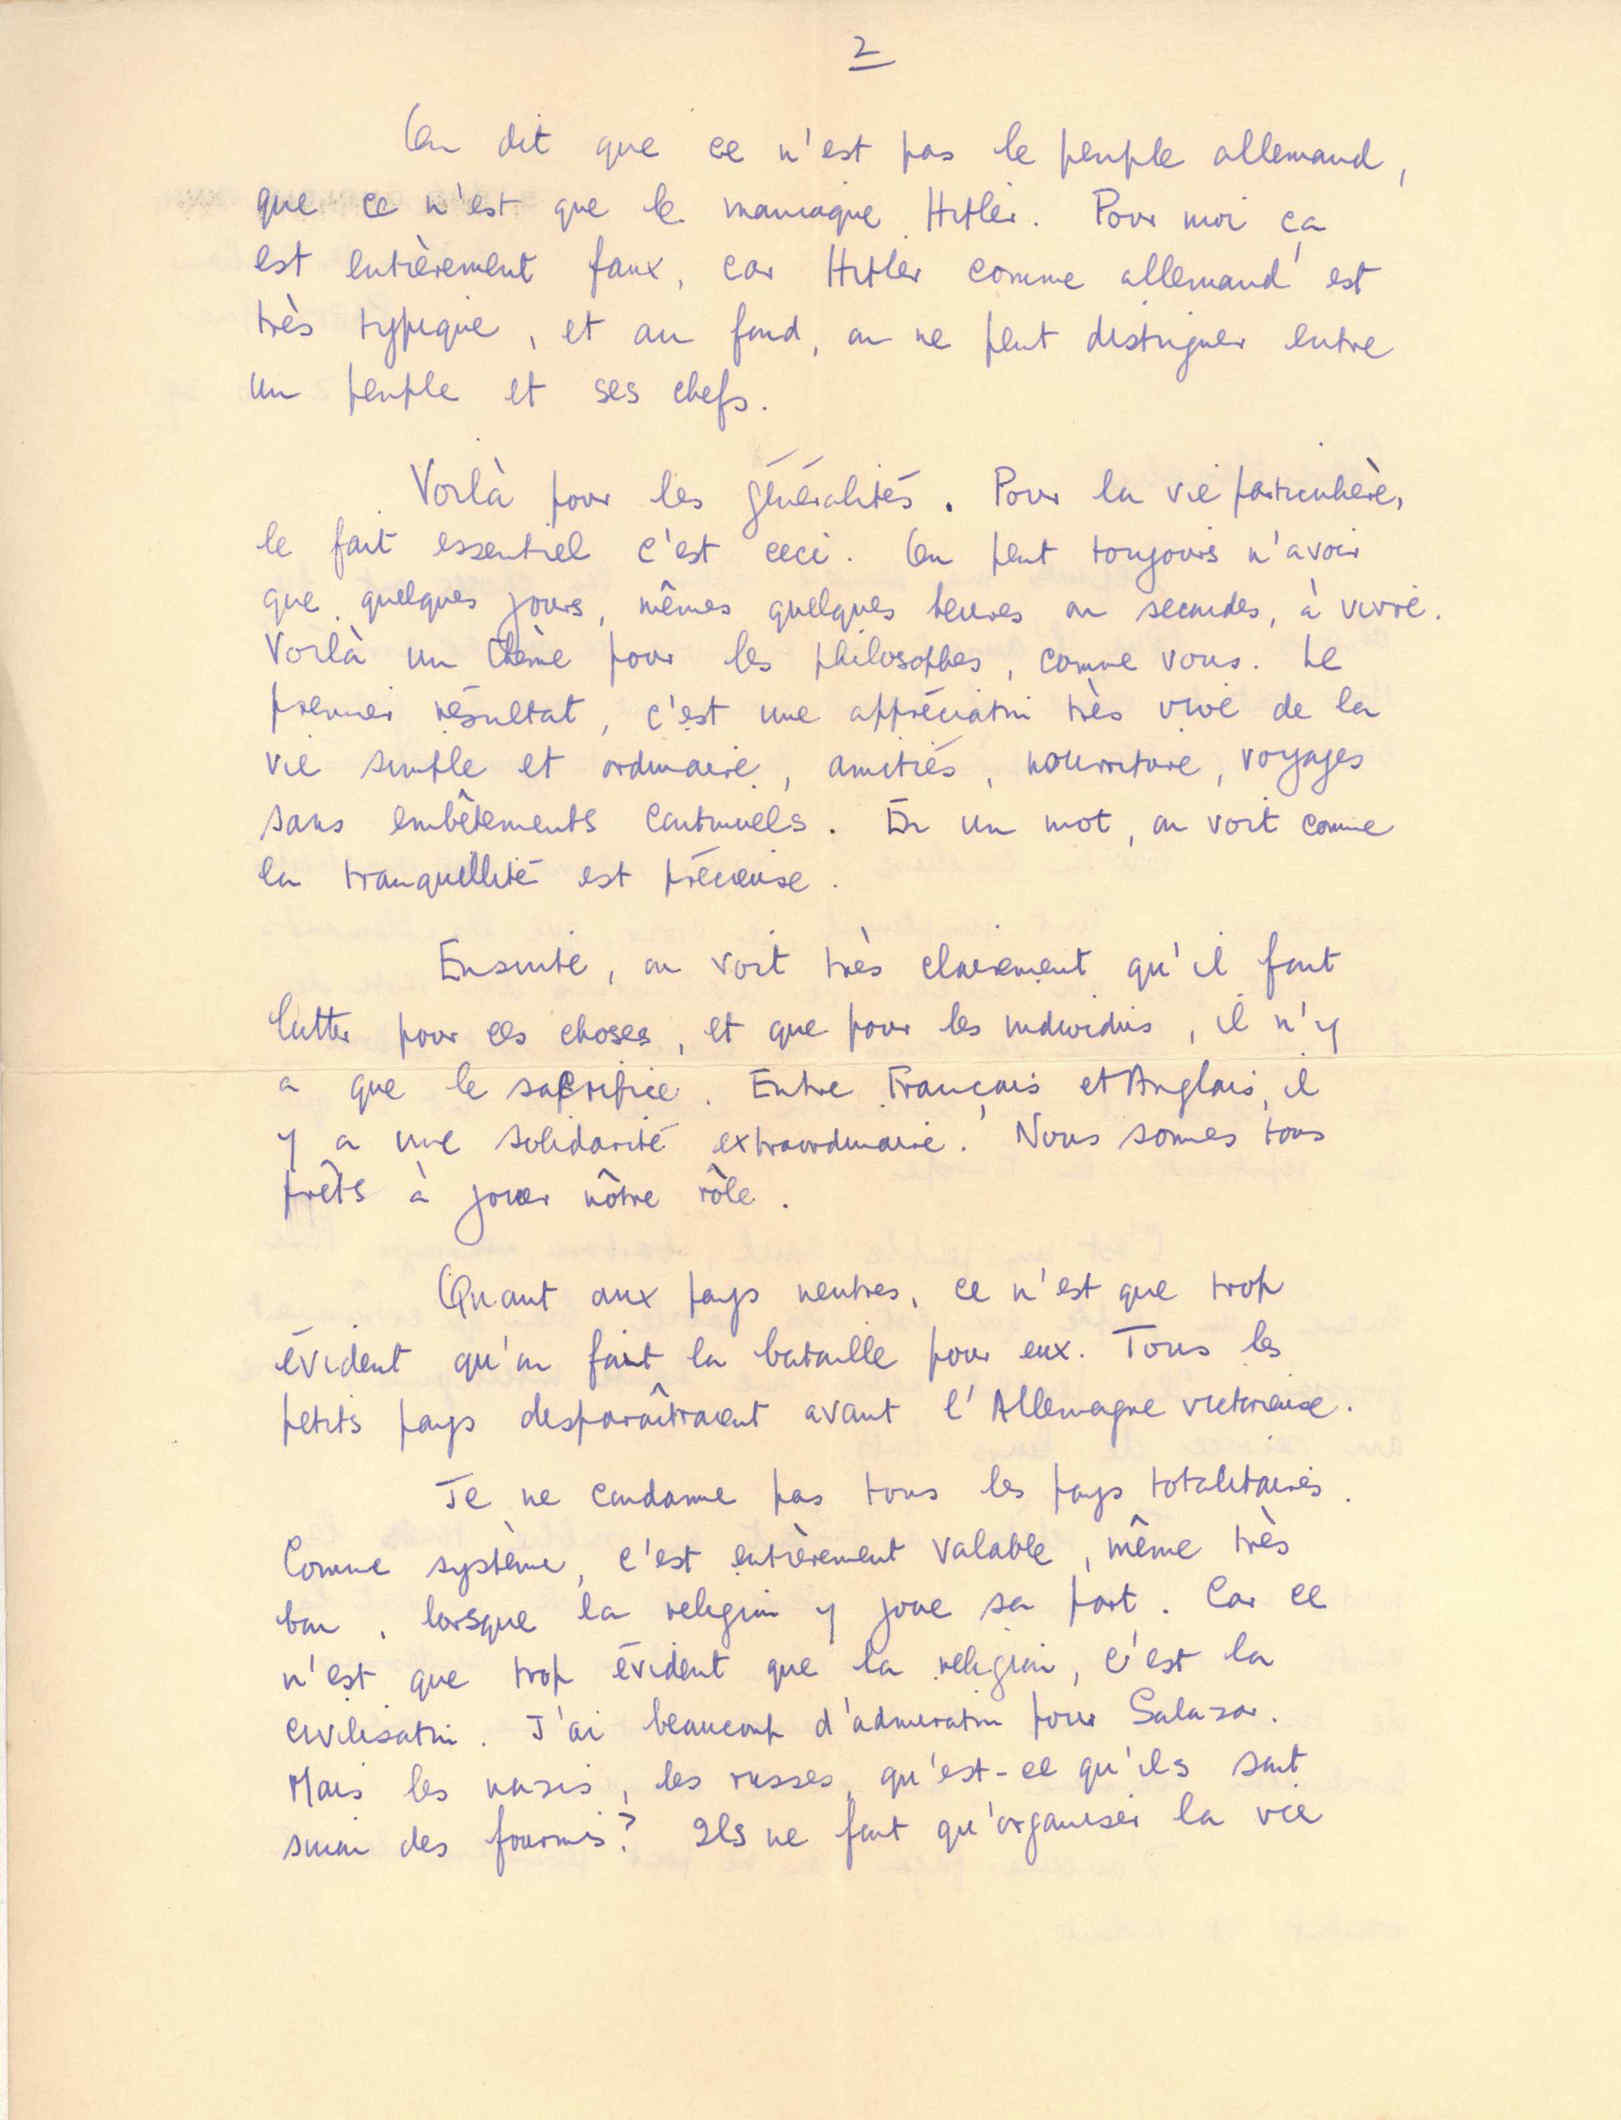 2
On dit que ce n'est pas le peuple allemand,
que ce n'est que le maniaque Hitler. Pour moi ça
est entièrement faux, car Hitler comme allemand est
très typique, et au fond, on ne peut distinguer entre
un peuple et ses chefs.
Voilà pour les généralités. Pour la vie particulière,
le fait essentiel c'est ceci. On peut toujours n'avoir
que quelques jours, mêmes quelques heures ou secondes, à vivre.
Voilà un thème pour les philosophes, comme vous. Le
premier résultat, c'est une appréciation très vive de la
vie simple et ordinaire, amitiés, nourriture, voyages
sans embêtements continuels. En un mot, on voit comme
la tranquillité est précieuse.
Ensuite, on voit très clairement qu'il faut
lutter pour ces choses, et que pour les individus, il n'y
a que le sacrifice. Entre Français et Anglais, il
y a une solidarité extraordinaire. Nous sommes tous
prêts à jouer nôtre rôle.
Quant aux pays neutres, ce n'est que trop
évident qu'on fait la bataille pour eux. Tous les
petits pays desparaîtraient avant l'Allemagne victorieuse.
Je ne condamne pas tous les pays totalitaires.
Comme système, c'est entièrement valable, même très
bon, lorsque la religion y joue sa part. Car ce
n'est que trop évident que la religion, c'est la
civilisation. J'ai beaucoup d'admiration pour Salazar.
Mais les nazis, les russes, qu'est-ce qu'ils sont
sinon des fourmis? Ils ne font qu'organiser la vie